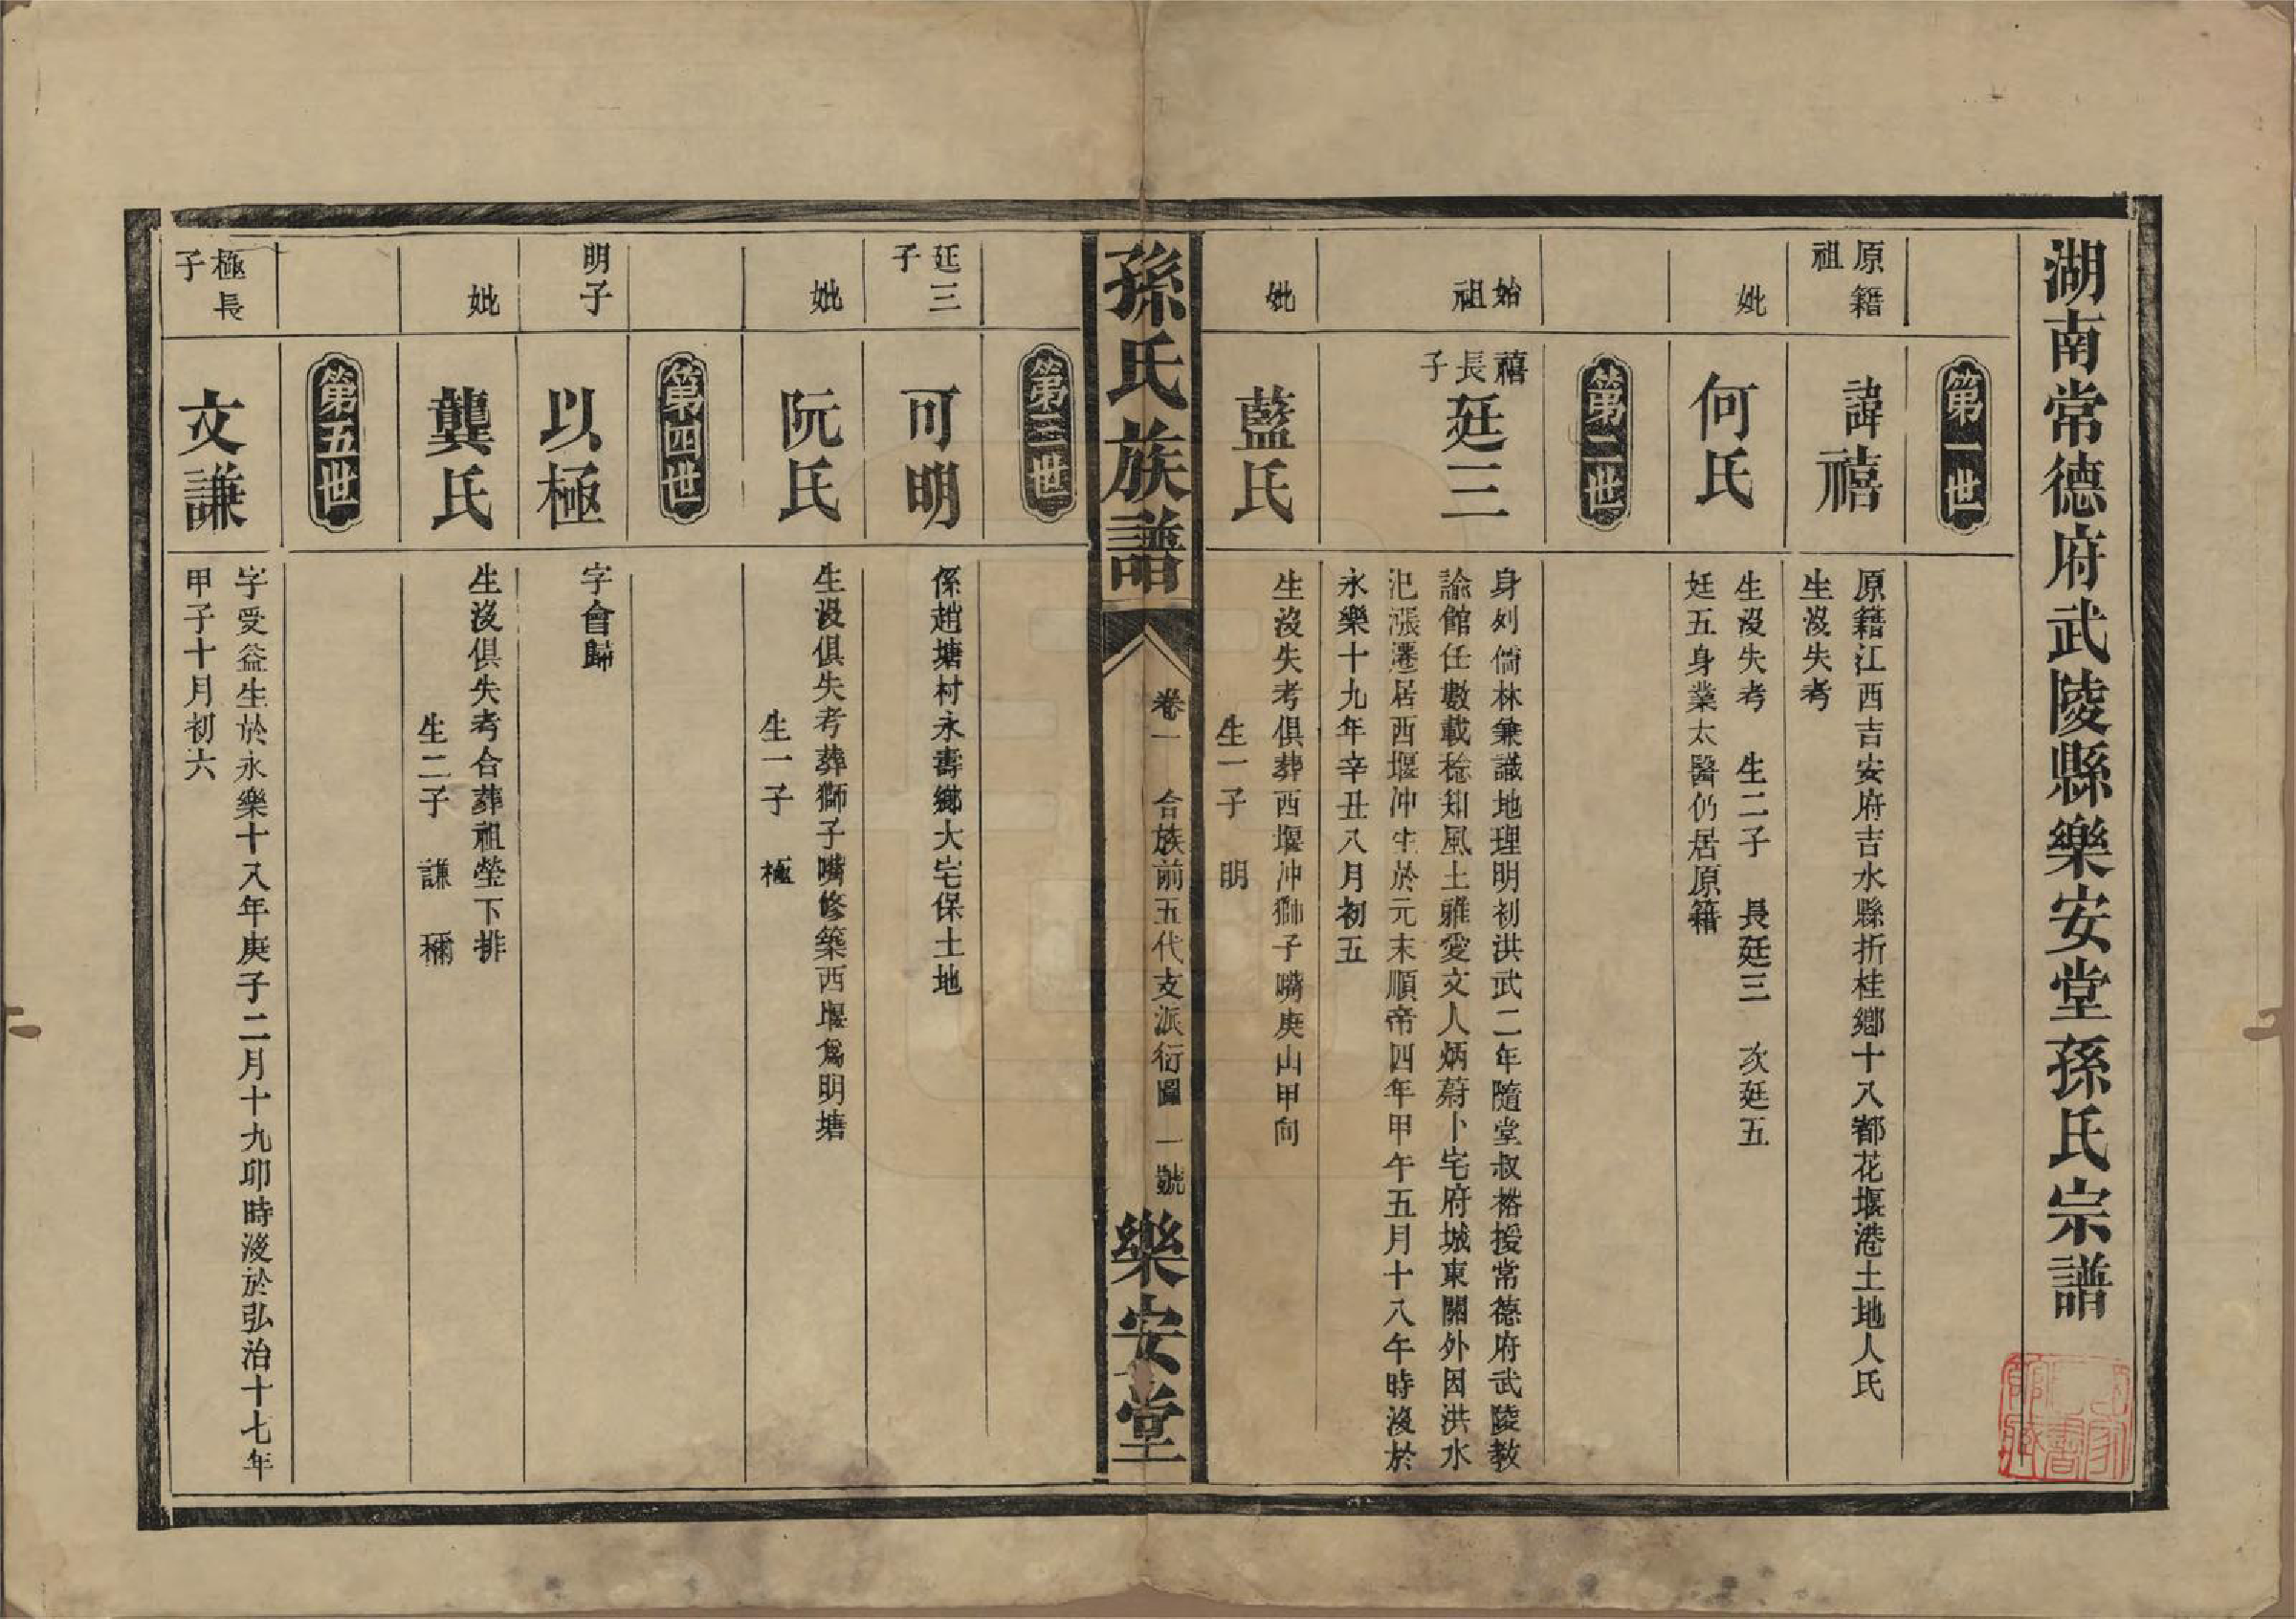 湖南常德府武陵縣樂安堂孫氏宗譜
第一世
原籍祖
諱禧
原籍江西吉安府吉水縣折桂鄉十八都花堰港土地人氏
生沒失考
妣
何氏
生沒失考 生二子 長廷三 次廷五
廷五身業太醫仍居原籍
第二世
始祖
禧長子
廷三
身列儒林兼識地理明初洪武二年隨堂叔裕援常德府武陵教
諭館任數載稔知風土雅愛文人炳蔚卜宅府城東關外因洪水
氾漲遷居西堰冲生於元末順帝四年甲午五月十八午時沒於
永樂十九年辛丑八月初五
妣
藍氏
生沒失考俱葬西堰冲獅子嘴庚山甲向
生一子 明
孫氏族譜
卷一 合族前五代支派衍圖 一號
樂安堂
第三世
廷三子
可明
係趙塘村永壽鄉大宅保土地
妣
阮氏
生沒俱失考葬獅子嘴修築西堰爲明塘
生一子 極
第四世
明子
以極
字會歸
妣
龔氏
生沒俱失考合葬祖塋下排
生二子 謙 禰
第五世
極長子
文謙
字受益生於永樂十八年庚子二月十九卯時沒於弘治十七年
甲子十月初六